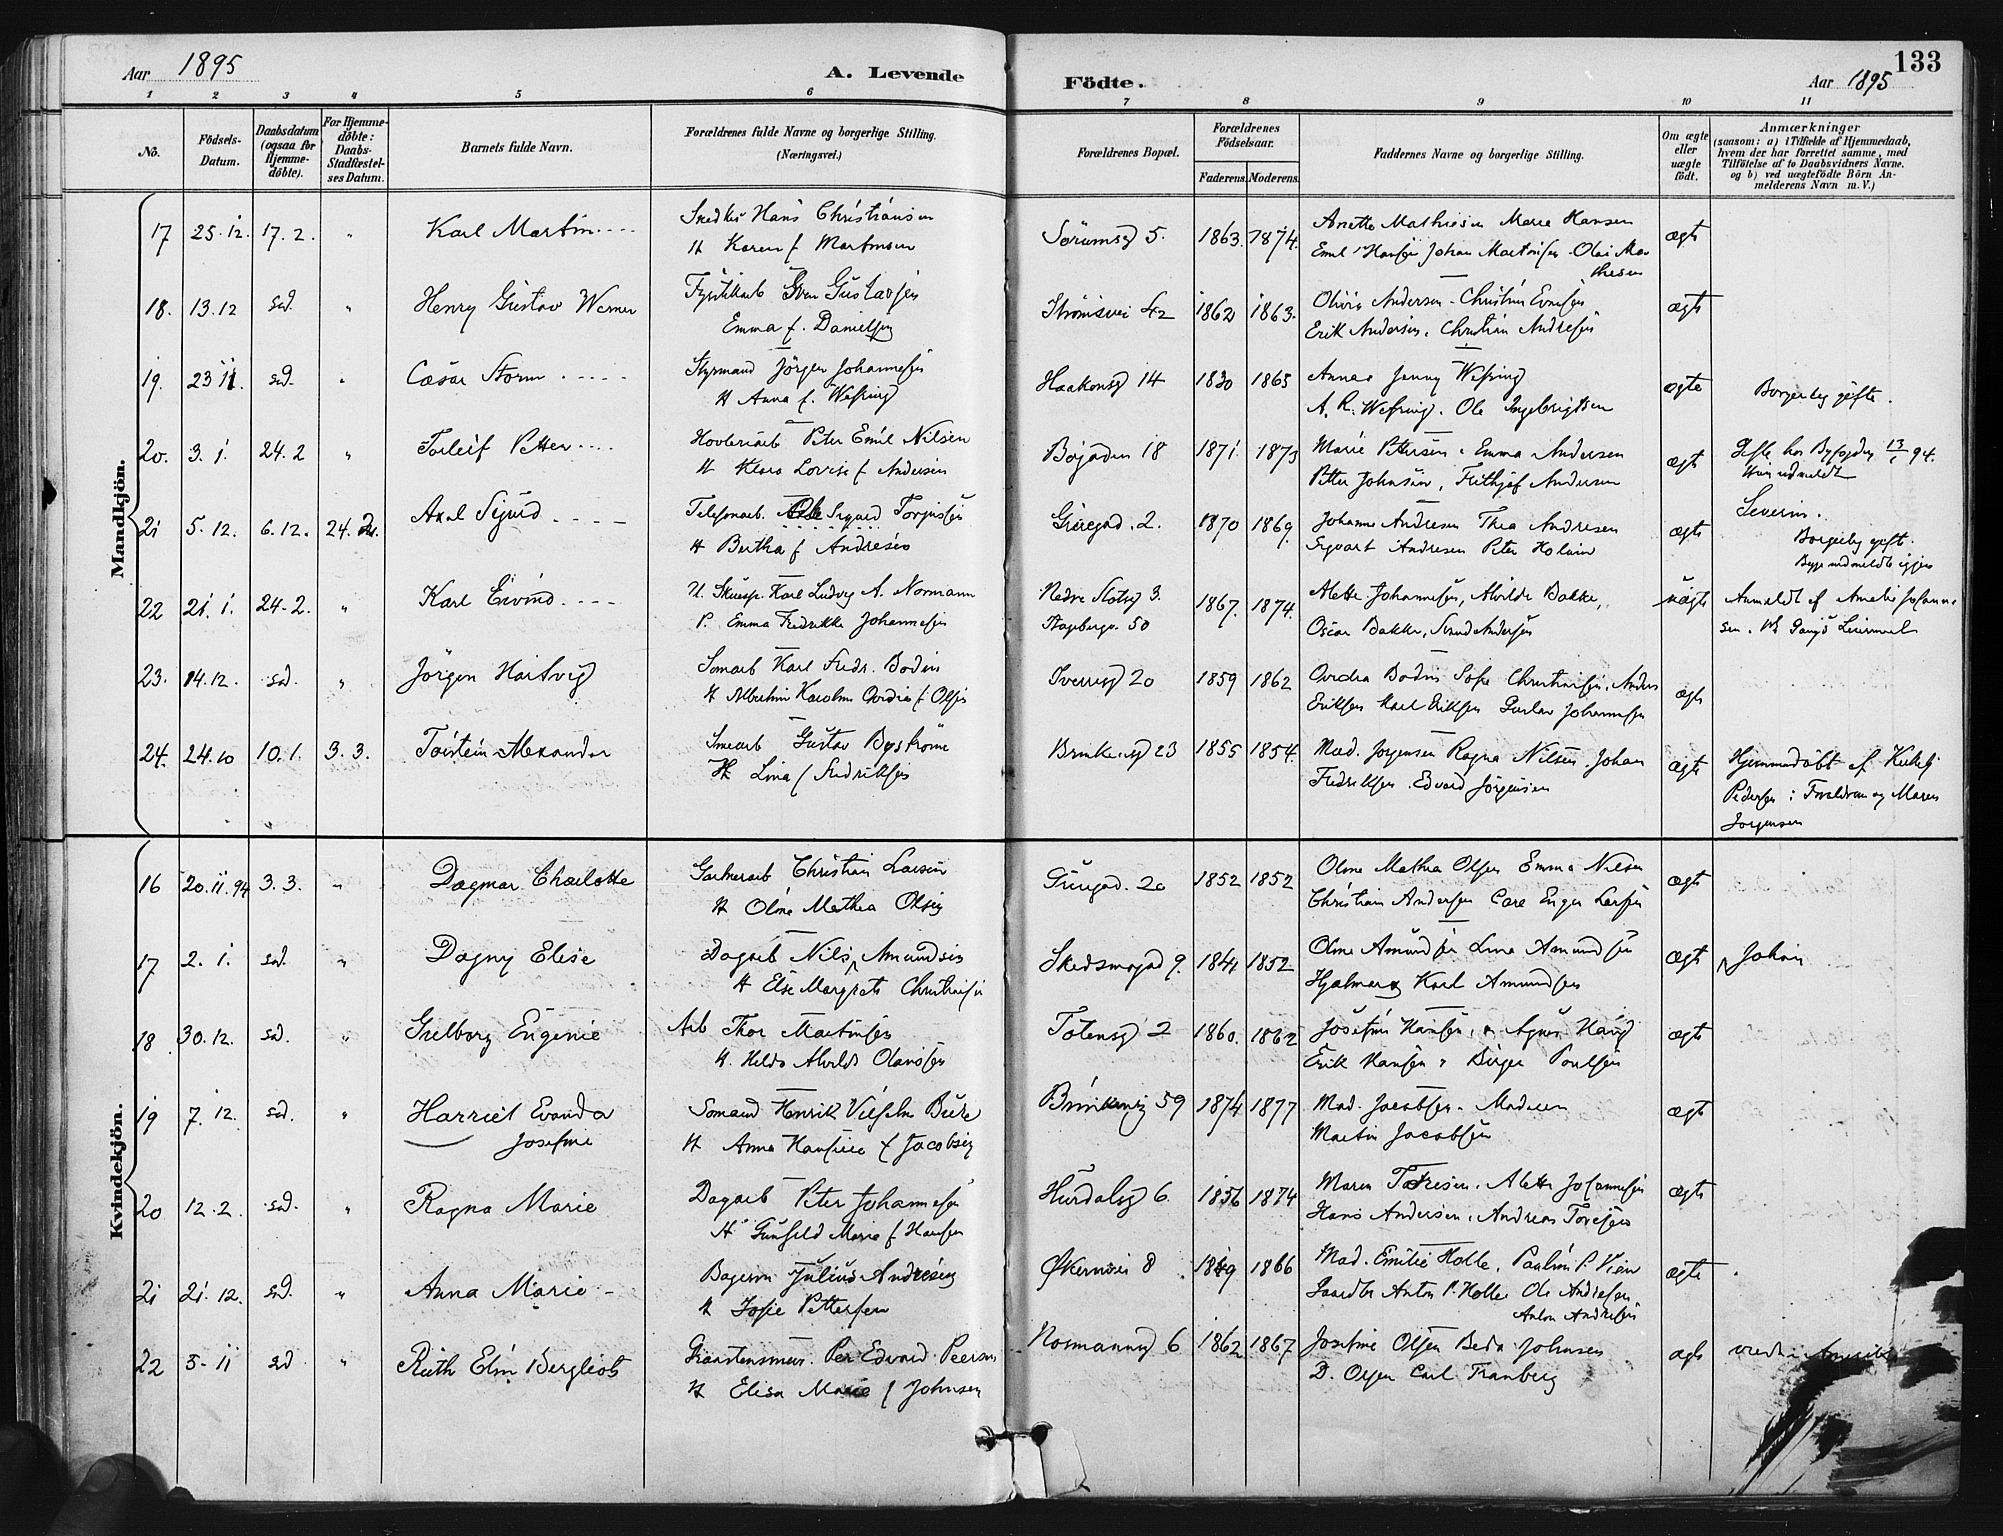 133
Aar 1895 A. Levende Födte. Aar 1895
1 2 3 4 5 6 7 8 9 10 11
No.
Födsels-
Datum.
Daabsdatum
(ogsaa for
Hjemme-
döbte).
For Hjemme-
döbte:
Daabs-
Stadfæstel-
ses Datum.
Barnets fulde Navn.
Forældrenes fulde Navne og borgerlige Stilling.
(Næringsvei.)
Forældrenes Bopæl.
Forældrenes
Födselsaar.
Faderens. Moderens.
Faddernes Navne og borgerlige Stilling.
Om ægte
eller
uægte
födt.
Anmærkninger
(saasom: a) i Tilfælde af Hjemmedaab,
hvem der har forrettet samme, med
Tilföielse af to Daabsvidners Navne,
og b) ved uægtefödte Börn An-
melderens Navn m. V.)
Mandkjön.
17 25.12. 17.2. " Karl Martin Hans Christiansen Sörumsg 5. 1863. 1874. Anette Mathiesen Marie Hansen ægte
H Karen f Martinsen Emil Hansen Johan Martinsen Olai Ma
thesen
18. 13.12 sad. " Henry Gustav Werner Gustavsen Strömsvei 42 1862 1863. Olivia Andersen Christine ægte
Emma f. Danielsen Erik Andersen. Christian Andresen
19. 23 11. sad. " Cæsar Storm Styrmand Jörgen Johannesen Haakonsg 14 1830 1865 Anna Jenny Wefring ægte Borgerlig gifte.
H Anna f. Wefring A. R. Wefring. Ole Ingebrigtsen
20. 3.1. 24.2 " Torleif Petter Hövleriarb Peter Emil Nilsen Böigaden 18 1871. 1873 Marie Pettersen Emma Andersen ægte Gifte hos Byfogden 13/1 94.
H Klara Lovise f Andersen Petter Johnsen, Frithjof Andersen Hun udmeldt
21 5.12. 6.12. 24.2. Axel Sigurd Telefonarb. Sigurd Torgersen Grüregad. 2. 1870 1869. Johanne Andresen Thea Andresen ægte Severin.
H Bertha f Andresen Sigvart Andresen Peter Holm Borgerlig gift.
udmeldt igjen
22 21.1. 24.2. " Karl Eivind U. Skuesp. Karl Ludvig A. Normann Nedre Slotsg 3. 1867. 1874. Alette Johannesen, Alvilde Bakke, uægte Anmeldt af Amelie Johanne
P. Emma Fredrikke Johannesen 50 Oscar Bakke, Andersen sen. Leiermaal
23. 14.12. sad. " Jörgen Hartvig Karl Fredr. Bodin Sverresg 20 1859 1862 Ovidia Bodin Sofie Christiansen, Anders ægte
H Albertine Karoline Ovidia f Olsen Eriksen Karl Eriksen Gustav Johannesen
24. 24.10 10.1. 3.3. Torstein Alexander Gustav Byström Brinkensg 23 1855 1854. Mad. Jorgensen Ragna Nilsen Johan ægte Hjemmedöbt af
H Lina f Fredriksen Fredriksen. Edvard Jörgensen Pedersen: Forældrene og Maren
Jorgensen
Kvindekjön.
16 20.11.94 3.3. " Dagmar Charlotte Gartnerarb Christian Larsen Grüregad. 20 1852 1852 Oline Mathea Olsen Emma Nilsen ægte
H Oline Mathea Olsen Christian Andersen Carl Larsen
17 2.1. sad. " Dagny Elise Dagarb Nils Amundsen Skedsmogad 9. 1841 1852 Oline Amundsen Lina Amundsen ægte Johan
H Else Margrete Christiansen Hjalmar og Karl Amundsen
18 30.12. sad. " Eugenie Arb Thor Martinsen Totensg 2 1860. 1862 Josefine Hansen, Agnes Haug ægte
H. Hilda Alvilde Olausen Erik Hansen Birger Poulsen
19 7.12. sad. " Harriet Evanda Sömand Henrik Vilhelm Brinkensg 59 1874 1877 Mad. Jacobsen. Madsen ægte
Josefine H Anna Hansine f Jacobsen Martin Jacobsen
20 12.2. sad. " Ragna Marie Dagarb Peter Johannesen Hurdalsg 6 1856 1874 Maren Alette Johannesen ægte
H Gunhild Marie f Hansen Hans Andersen, Andreas Toresen
21 21.12. sad. " Anna Marie Bagersv Julius Andresen Økernvei 8 1866 Mad. Emilie Holle, Pauline P. ægte
H Josefie Pettersen Anton P. Holle Ole Andresen
Anton Andresen
22 3-11 sad " Ruth Elin Bergliot Per Edvard Normannsg 6 1862 1867 Josefine Olsen Beda Johnsen ægte
H Elisa Marie f Johnsen D. Olsen Carl Tranberg